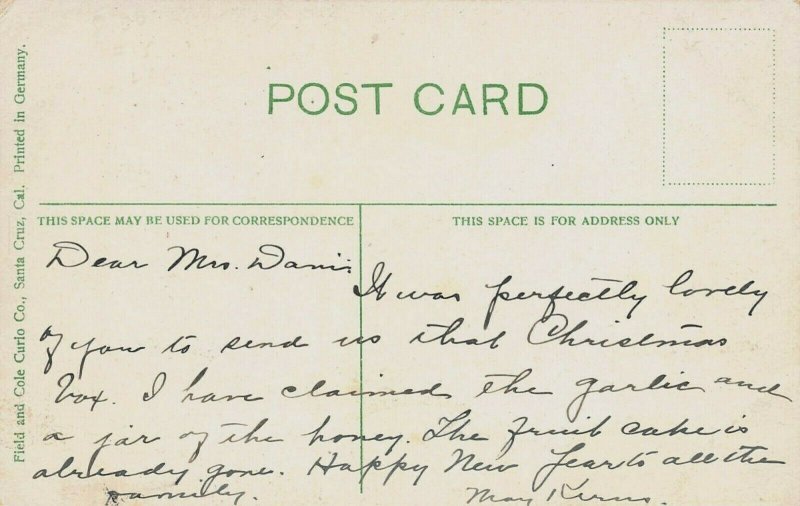 POST CARD
THIS SPACE MAY BE USED FOR CORRESPONDENCE
THIS SPACE IS FOR ADDRESS ONLY
Field and Cole Curio Co., Santa Cruz, Cal. Printed in Germany.
Dear Mrs. Davis:
It was perfectly lovely
of you to send us that Christmas
box. I have claimed the garlic and
a jar of the honey. The fruit cake is
already gone. Happy New Year to all the
family.
May Kerns.